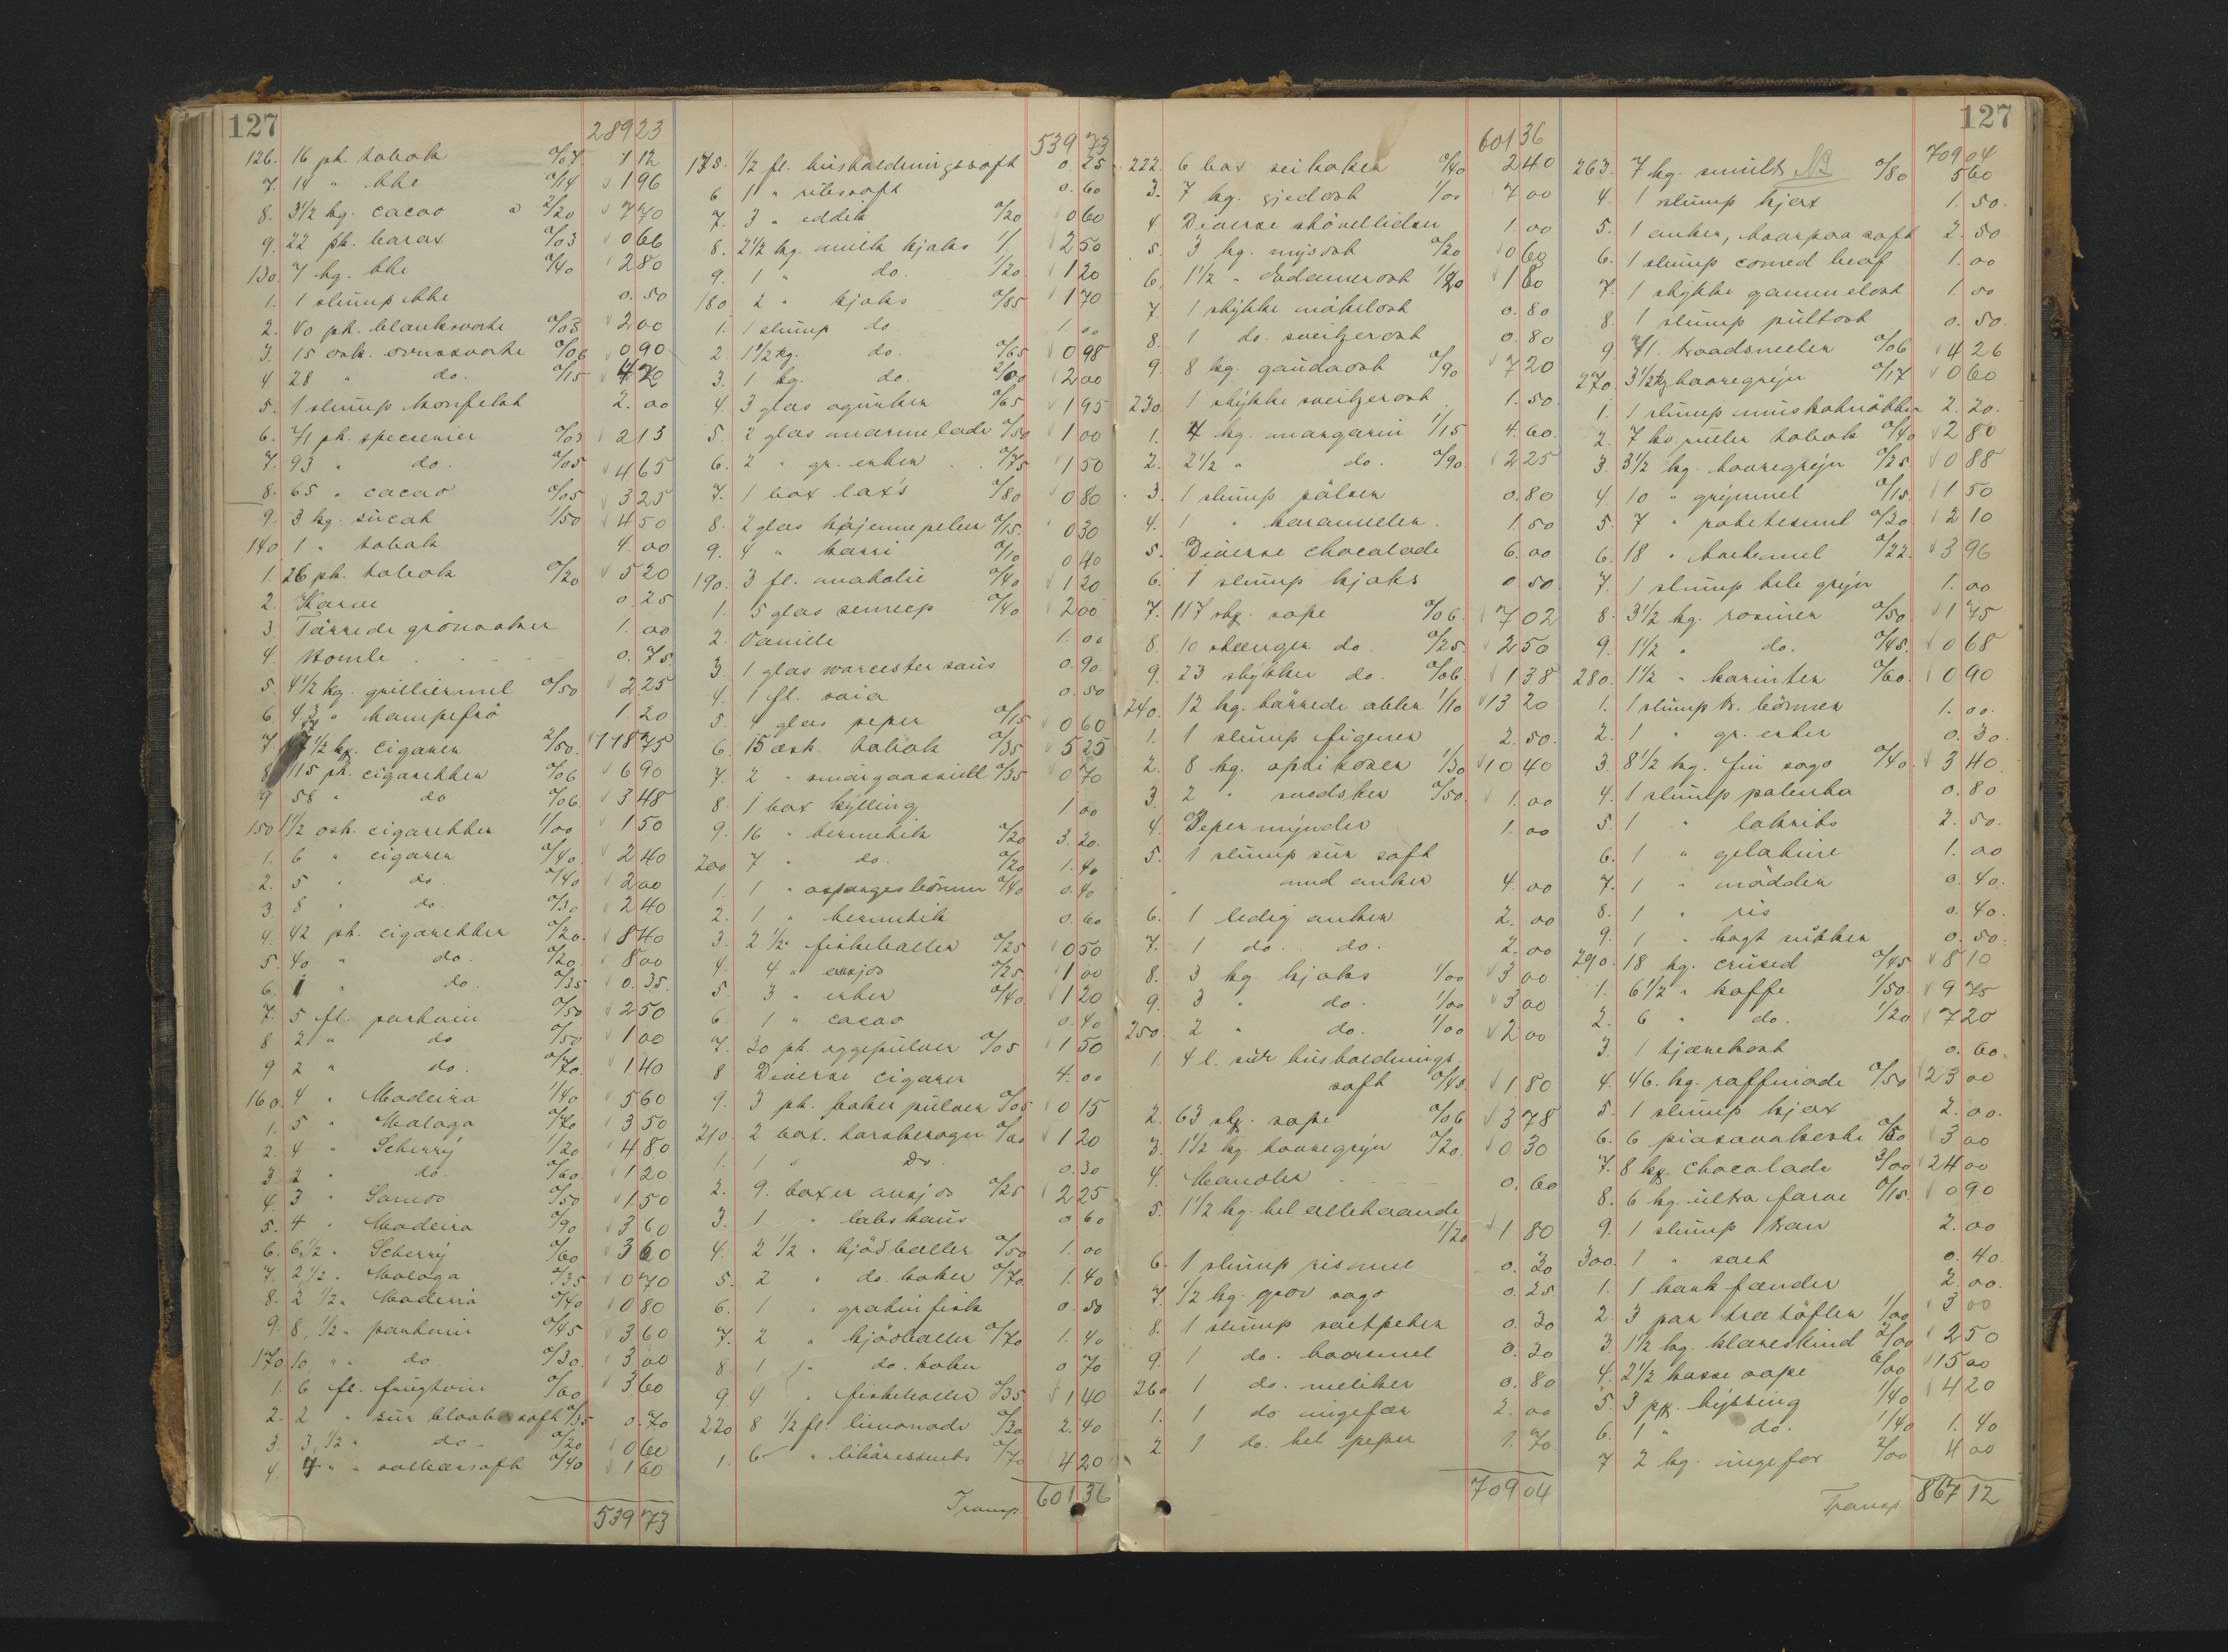 127
289 23
126. 16 pk. tobak 0/07 1 12
7. 14 " the 0/14 1 96
8. 3 1/2 kg. cacao a 2/20 7 70
9. 22 pk. borax 0/03 0 66
130. 7 kg. the 0/40 2 80
1. 1 slump the 0. 50
2. 40 pk. blanksværte 0/05 2 00
3. 15 æsk. ovnssværte 0/06 0 90
4 28 " do. 0/15 4 20
5. 1 slump konfekt 2. 00
6. 71 pk. specerier 0/03 2 13
7. 93 " do. 0/05 4 65
8. 65 " cacao 0/05 3 25
9. 3 kg. sucat 1/50 4 50
140 1 " tobak 4. 00
1. 26 pk. tobak 0/20 5 20
2. Karve 0. 25
3. Tørrede grønsaker 1. 00
4. Humle 0. 75
5. 4 1/2 kg. grilliermel 0/50 2 25
6. 4 " hampefrø 1 20
7. 7 1/2 hf. cigarer 2/50. 118 75
8 115 pk. cigaretter 0/06 6 90
9 58 " do 0/06. 3 48
150 1 1/2 æsk. cigaretter 1/00 1 50
1. 6 " cigarer 0/40. 2 40
2. 5 " do 0/40 2 00
3. 8 " do. 0/30 2 40
4. 42 pk. cigaretter 0/20. 8 40
5. 40 " do. 0/20. 8 00
6. 1 " do. 0/35 0. 35.
7. 5 fl. portvin 0/50 2 50
8 2 " do 0/50 1 00
9 2 " do. 0/70. 1 40
160. 4 " Madeira 1/40 5 60
1. 5 " Malaga 0/70 3 50
2. 4 " Scherry 1/20 4 80
3 2 " do. 0/60. 1 20
4. 3 " Samos 0/50 1 50
5. 4 " Madeira 0/90 3 60
6. 6 1/2 " Scherry 0/60 3 60
7. 2 1/2 " Malaga 0/35 0 70
8. 2 1/2 " Madeira 0/40 0 80
9. 8 1/2 " portvin 0/45 3 60
170 10 " " do 0/30. 3 00
1. 6 fl. frugtvin 0/60 3 60
2. 2 " sur blaabærsaft 0/35 0. 70
3. 3 1/2 " do - 0/20 0 60
4. 4 " " solbærsaft 0/40 1 60
539 73
539 73
175. 1/2 fl. husholdningssaft 0. 25
6 1 " ribssaft 0. 60
7. 3 " eddik 0/20 0 60
8. 2 1/2 kg. milk kjaks 1/ 2 50
9. 1 " do. 1/20 1 20
180 2 " kjaks 0/85 1 70
1. 1 slump do. 1. 00
2. 1 1/2 kg. do. 0/65 0 98
3. 1 kg. do. 2/00 2 00
4. 3 glas agurker 0/65 1 95
5. 2 glas marmelade 0/50 1 00
6. 2 " gr. erter 0/75 1 50
7. 1 box lax's 0/80 0 80
8. 2 glas kajennepeber 0/15. 0 30
9. 4 " karri 0/10 0 40
190. 3 fl. anatolie 0/40 1 20
1. 5 glas sennep 0/40 2 00
2. Vanille 1. 00
3. 1 glas worcester saus 0. 90.
4. 1 fl. soia 0. 50
5. 4 glas peper 0/15 0 60
6. 15 æsk. tobak 0/35 5 25
7. 2 " smørgaassild 0/35 0 70
8. 1 box kylling 1. 00
9. 16 " hermetik 0/20 3. 20.
200 7 " do. 0/20 1. 40
1. 1 " aspargesbønner 0/40 0. 40
2. 1 " hermetik 0. 60
3. 2 1/2 " fiskeboller 0/25 0 50
4. 4 " ansjos 0/25. 1 00
5. 3 " erter 0/40. 1 20
6. 1 " cacao 0. 40
7. 30 pk. æggepulver 0/05 1 50
8 Diverse cigarer 4. 00
9. 3 pk. baker pulver 0/05 0 15
210. 2 box. torskerogn 0/60 1 20
1. 1 " Do. 0. 30
2. 9. boxer ansjos 0/25 2 25
3. 1 " labskaus 0 60
4. 2 1/2 " kjødboller 0/50 1. 00
5. 2 " do. kaker 0/70. 1. 40
6. 1 " gratin fisk 0. 50
7. 2 " kjødboller 0/70 1. 40
8. 1 " do. kaker 0 70
9. 4 " fiskeboller 0/35. 1 40
220 8 1/2 fl. limonade 0/30 2. 40
1. 6 " likøressents 0/70 4 20
Transp 601 36
601 36
222. 6 box seikaker 0/40 2 40
3. 7 kg. gjedost 1/00 7 00
4. Diverse skövellidser 1. 00
5. 3 kg. mysost 0/20 0 60
6. 1 1/2 " Edamerost 1/20 1 80
7. 1 stykke nökelost 0. 80
8. 1 do. sveitzerost 0. 80
9. 8 kg. gaudaost 0/90 7 20
230. 1 stykke sveitzerost 1. 50
1. 4 kg. margarin 1/15 4. 60.
2. 2 1/2 " do. 0/90. 2 25
3. 1 slump pölser 0. 80
4. 1 " karameller 1. 50
5. Diverse chocolade 6. 00
6. 1 slump kjaks 0. 50.
7. 117 stk. sæpe 0/06. 7 02
8. 10 stænger do. 0/25. 2 50
9. 23 stykker do. 0/06. 1 38
240. 12 kg. tørrede æbler 1/10 13 20
1. 1 slump figener 2. 50.
2. 8 kg. aprikoser 1/30 10 40
3. 2 " svedsker 0/50. 1. 00
4. Pepermynder 1. 00
5. 1 slump sur saft
med anker 4. 00
6. 1 ledig anker 2. 00
7. 1 do. do. 2. 00
8. 3 kg. kjaks 1/00 3 00
9. 3 " do. 1/00 3 00
250. 2 " do. 1/00 2 00
1. 4 l. sur husholdnings
saft 0/45. 1 80
2. 63 stk. sæpe 0/06 3 78
3. 1 1/2 kg. havregryn 0/20. 0 30
4. Mandler 0. 60
5. 1 1/2 kg. hel allehaande
1/20 1 80
6. 1 slump rismel 0. 30
7. 1/2 kg. grov sago 0. 25
8. 1 slump saltpeter 0. 30
9. 1 do. havremel 0. 30
260. 1 do. nelliker 0. 80
1. 1 do ingefær 2. 00
2. 1 do. hel peper 1. 70
709 04
127
709 04
263. 7 kg. smult NB 0/80 5 60
4. 1 slump kjæx 1. 50.
5. 1 anker, haarpaa saft 2. 50
6. 1 slump corned beaf 1. 00
7. 1 stykke gammelost 1. 00
8. 1 slump pultost 0. 50.
9. 71. traadsneller 0/06 4 26
270. 3 1/2 kg havregryn 0/17 0 60
1. 1 slump muskatnötter 2. 20.
2. 7 ho. ruller tobak 0/40 2 80
3. 3 1/2 kg. havregryn 0/25. 0 88
4. 10 " grynmel 0/15. 1 50
5. 7 " potetesmel 0/30 2 10
6. 18 " hvetemel 0/22. 3 96
7. 1 slump hele gryn 1. 00
8. 3 1/2 kg. rosiner 0/50. 1 75
9. 1 1/2 " do. 0/45. 0 68
280. 1 1/2 " korinter 0/60. 0 90
1. 1 slump tr. bønner 1. 00.
2. 1 " gr. erter 0. 30.
3. 8 1/2 kg. fin sago 0/40. 3 40
4. 1 slump polenta 0. 80
5. 1 " lakrits 2. 50.
6. 1 " gelatine 1. 00
7. 1 " nødder 0. 40.
8. 1 " ris 0. 40.
9. 1 " hagt sukker 0. 50.
290. 18 kg. crused 0/45 8 10
1. 6 1/2 " kaffe 1/50. 9 75
2. 6 " do. 1/20 7 20
3. 1 tjærekost 0. 60.
4. 46. kg. raffinade 0/50 23 00
5. 1 slump kjæx 2. 00.
6. 6 piasavakoste 0/50 3 00
7. 8 kg. chocolade 3/00 24 00
8. 6 kg. ultra farve 0/15. 0 90
9. 1 slump tran 2. 00
300. 1 " salt 0. 40.
1. 1 kank fænder 2. 00.
2. 3 par tretöfler 1/00 3 00
3. 1 1/2 kg. klareskind 2/00 2 50
4. 2 1/2 kasse sæpe 6/00 15 00
5. 3 pk. hyssing 1/40 4 20
6. 1 " do. 1/40 1. 40
7 2 kg. ingefær 2/00 4 00
Transp 867 12